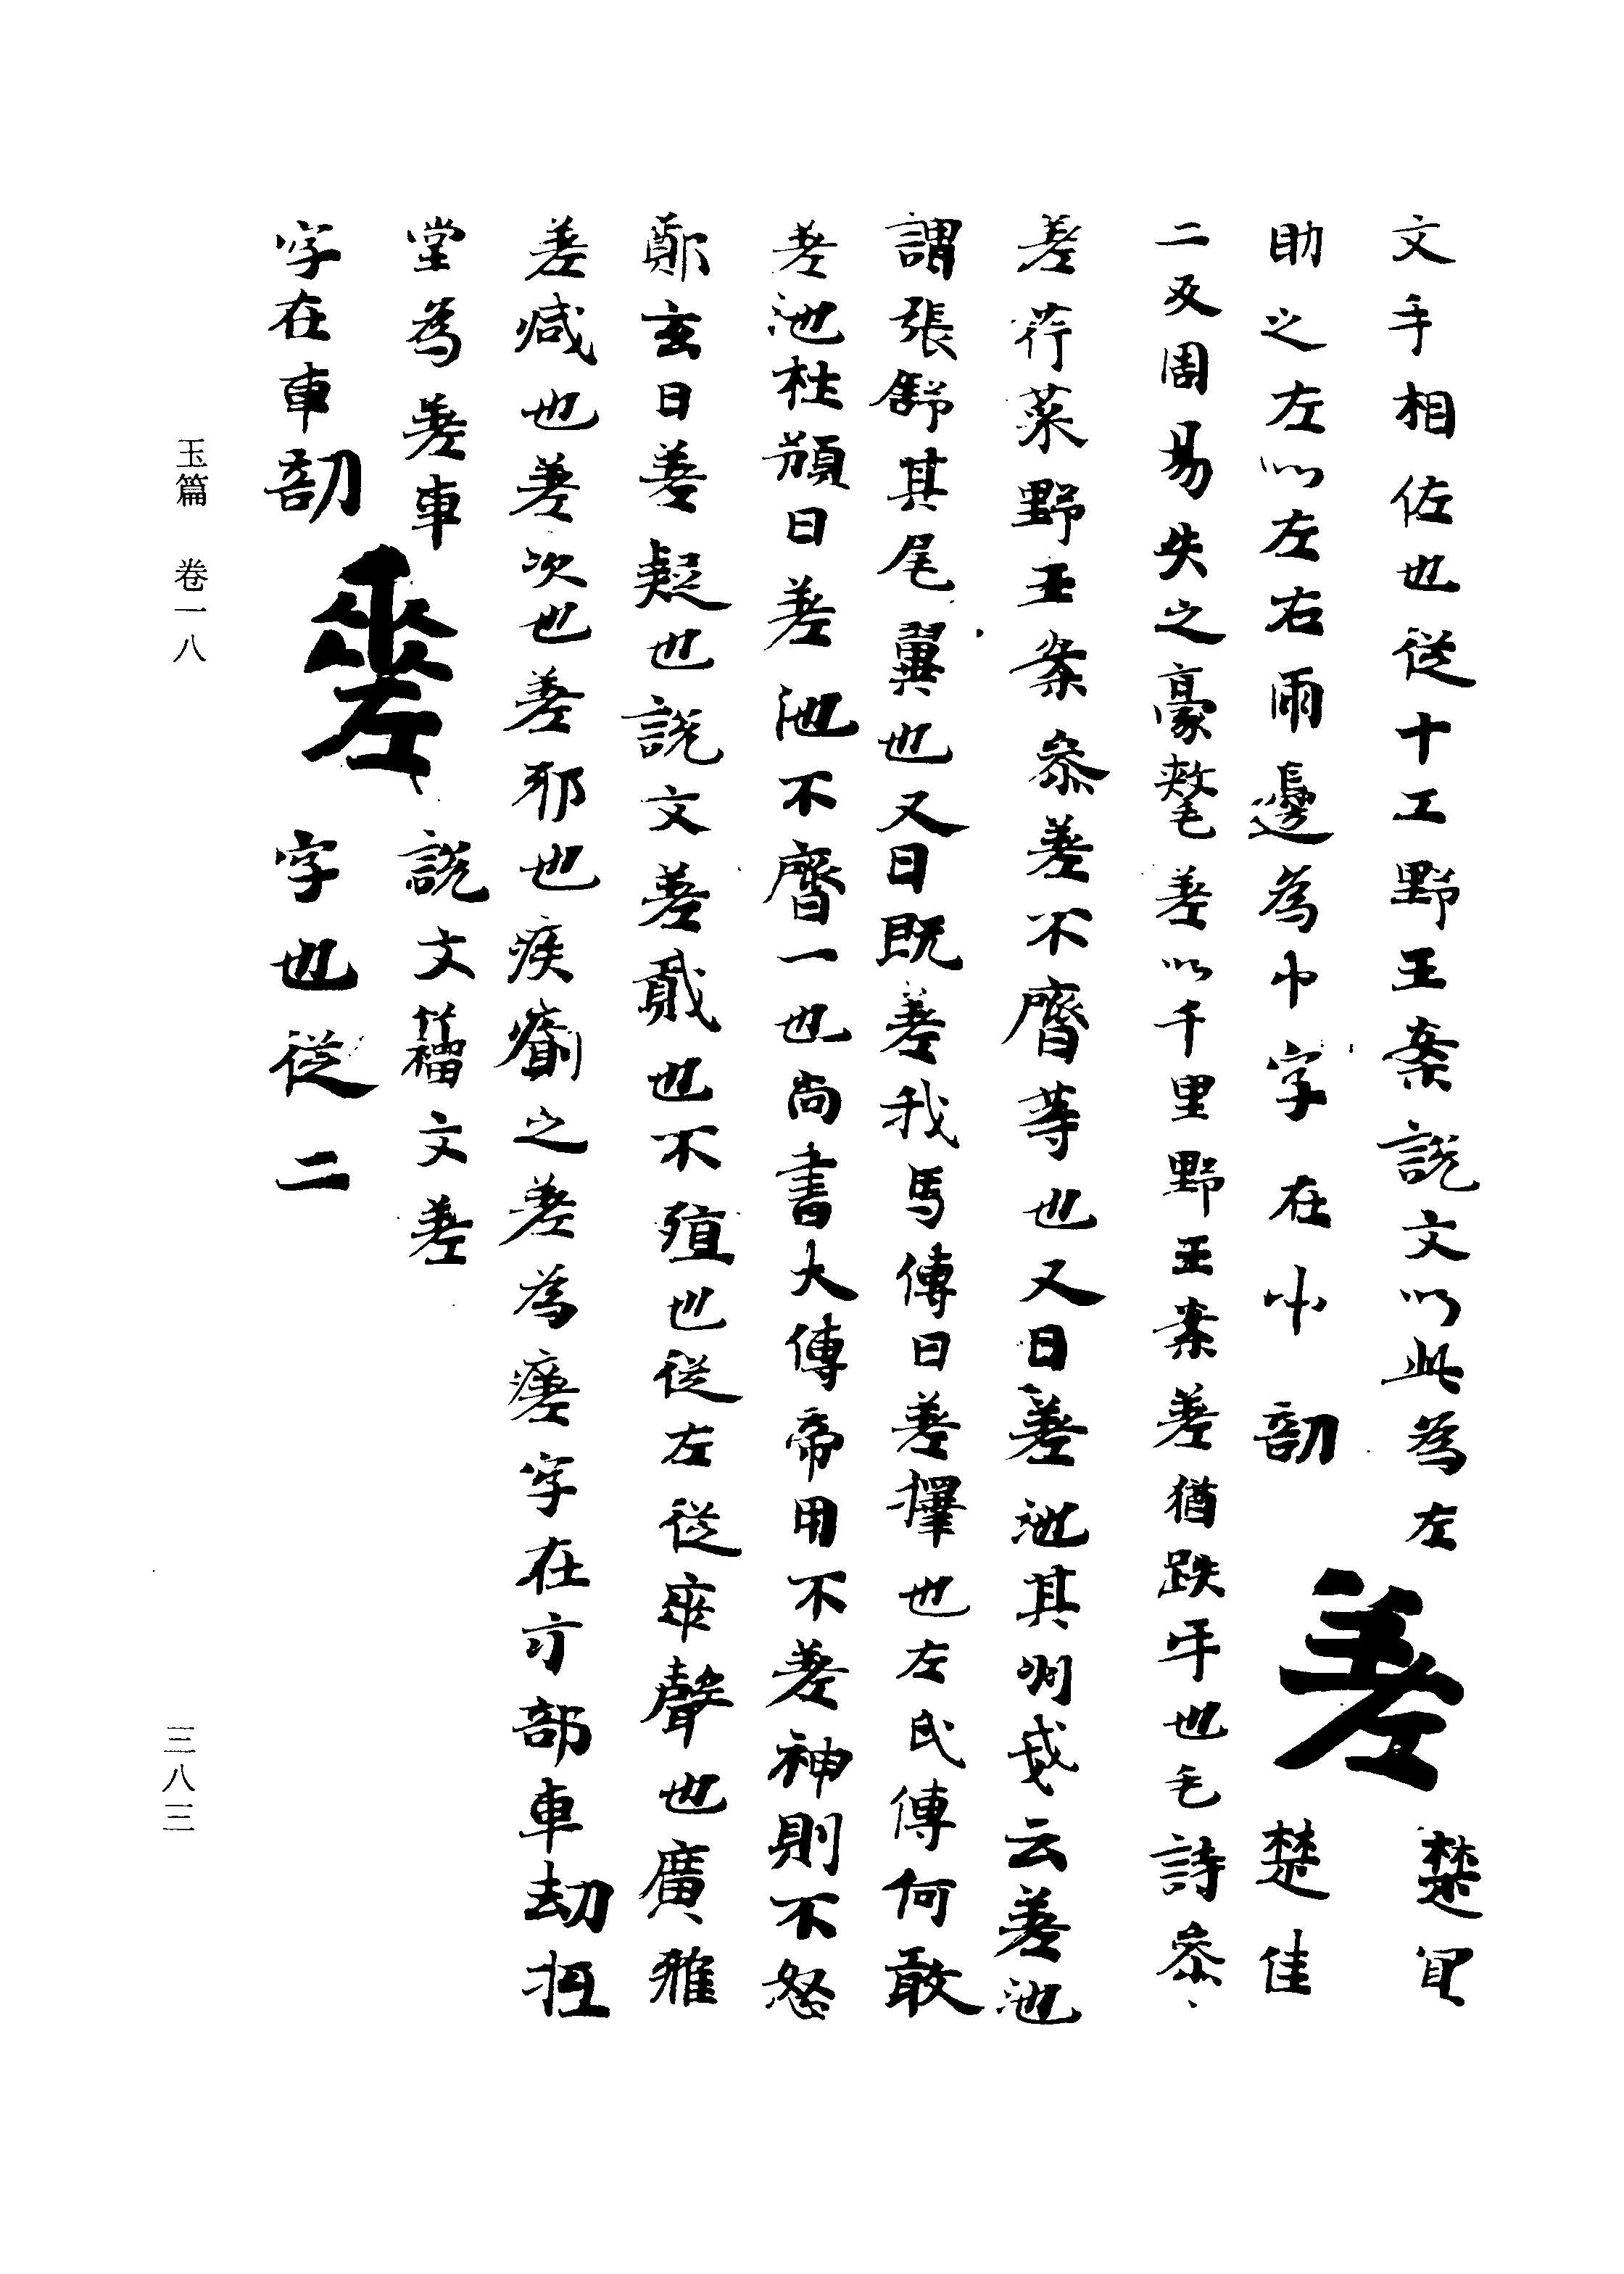 文手相佐也從十工野王案說文以此為左
助之左以左右兩邊為巾字在巾部
差
楚宜
楚佳
二反周易失之豪氂差以千里野王案差猶跌手也毛詩叅〻
差荇菜野王案叅差不齊等也又曰差池其羽戔云差池
謂張舒其尾翼也又曰既差我馬傳曰差擇也左氏傳何敢
差池杜預曰差池不齊一也尚書大傳帝用不差神則不怒
鄭玄曰差疑也說文差貳也不殖也從左從𠂹聲也廣雅
差減也差次也差邪也疾瘉之差為瘥字在疒部車劫
堂為差車
字在車部
𢀩
說文籀文差
字也從二
玉篇 卷一八
三八三